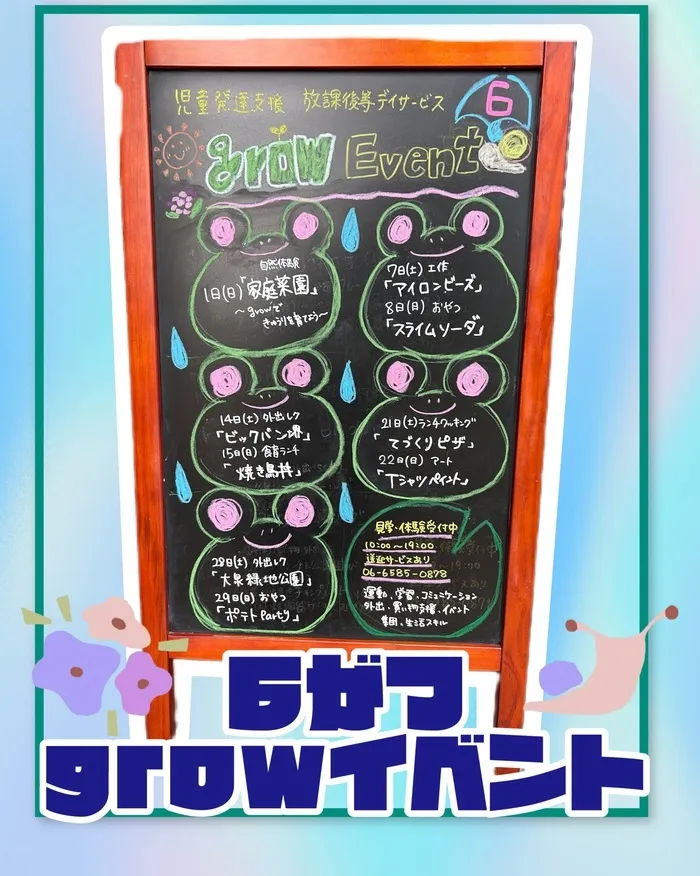 児童発達支援 放課後等デイサービス
6
grow Event
自然体験
1日(日)「家庭菜園」
〜growで
きゅうりを育てよう〜
7日(土) 工作
「アイロンビーズ」
8日(日) おやつ
「スライムソーダ」
14日(土) 外出レク
「ビックバン堺」
15日(日) 食育ランチ
「焼き鳥丼」
21日(土) ランチクッキング
「てづくりピザ」
22日(日) アート
「Tシャツペイント」
28日(土) 外出レク
「大泉緑地公園」
29日(日) おやつ
「ポテトParty」
見学・体験受付中
10:00〜19:00
送迎サービスあり
06-6585-0878
運動・学習・コミュニケーション
外出・買い物支援・イベント
集団・生活スキル
6がつ
growイベント